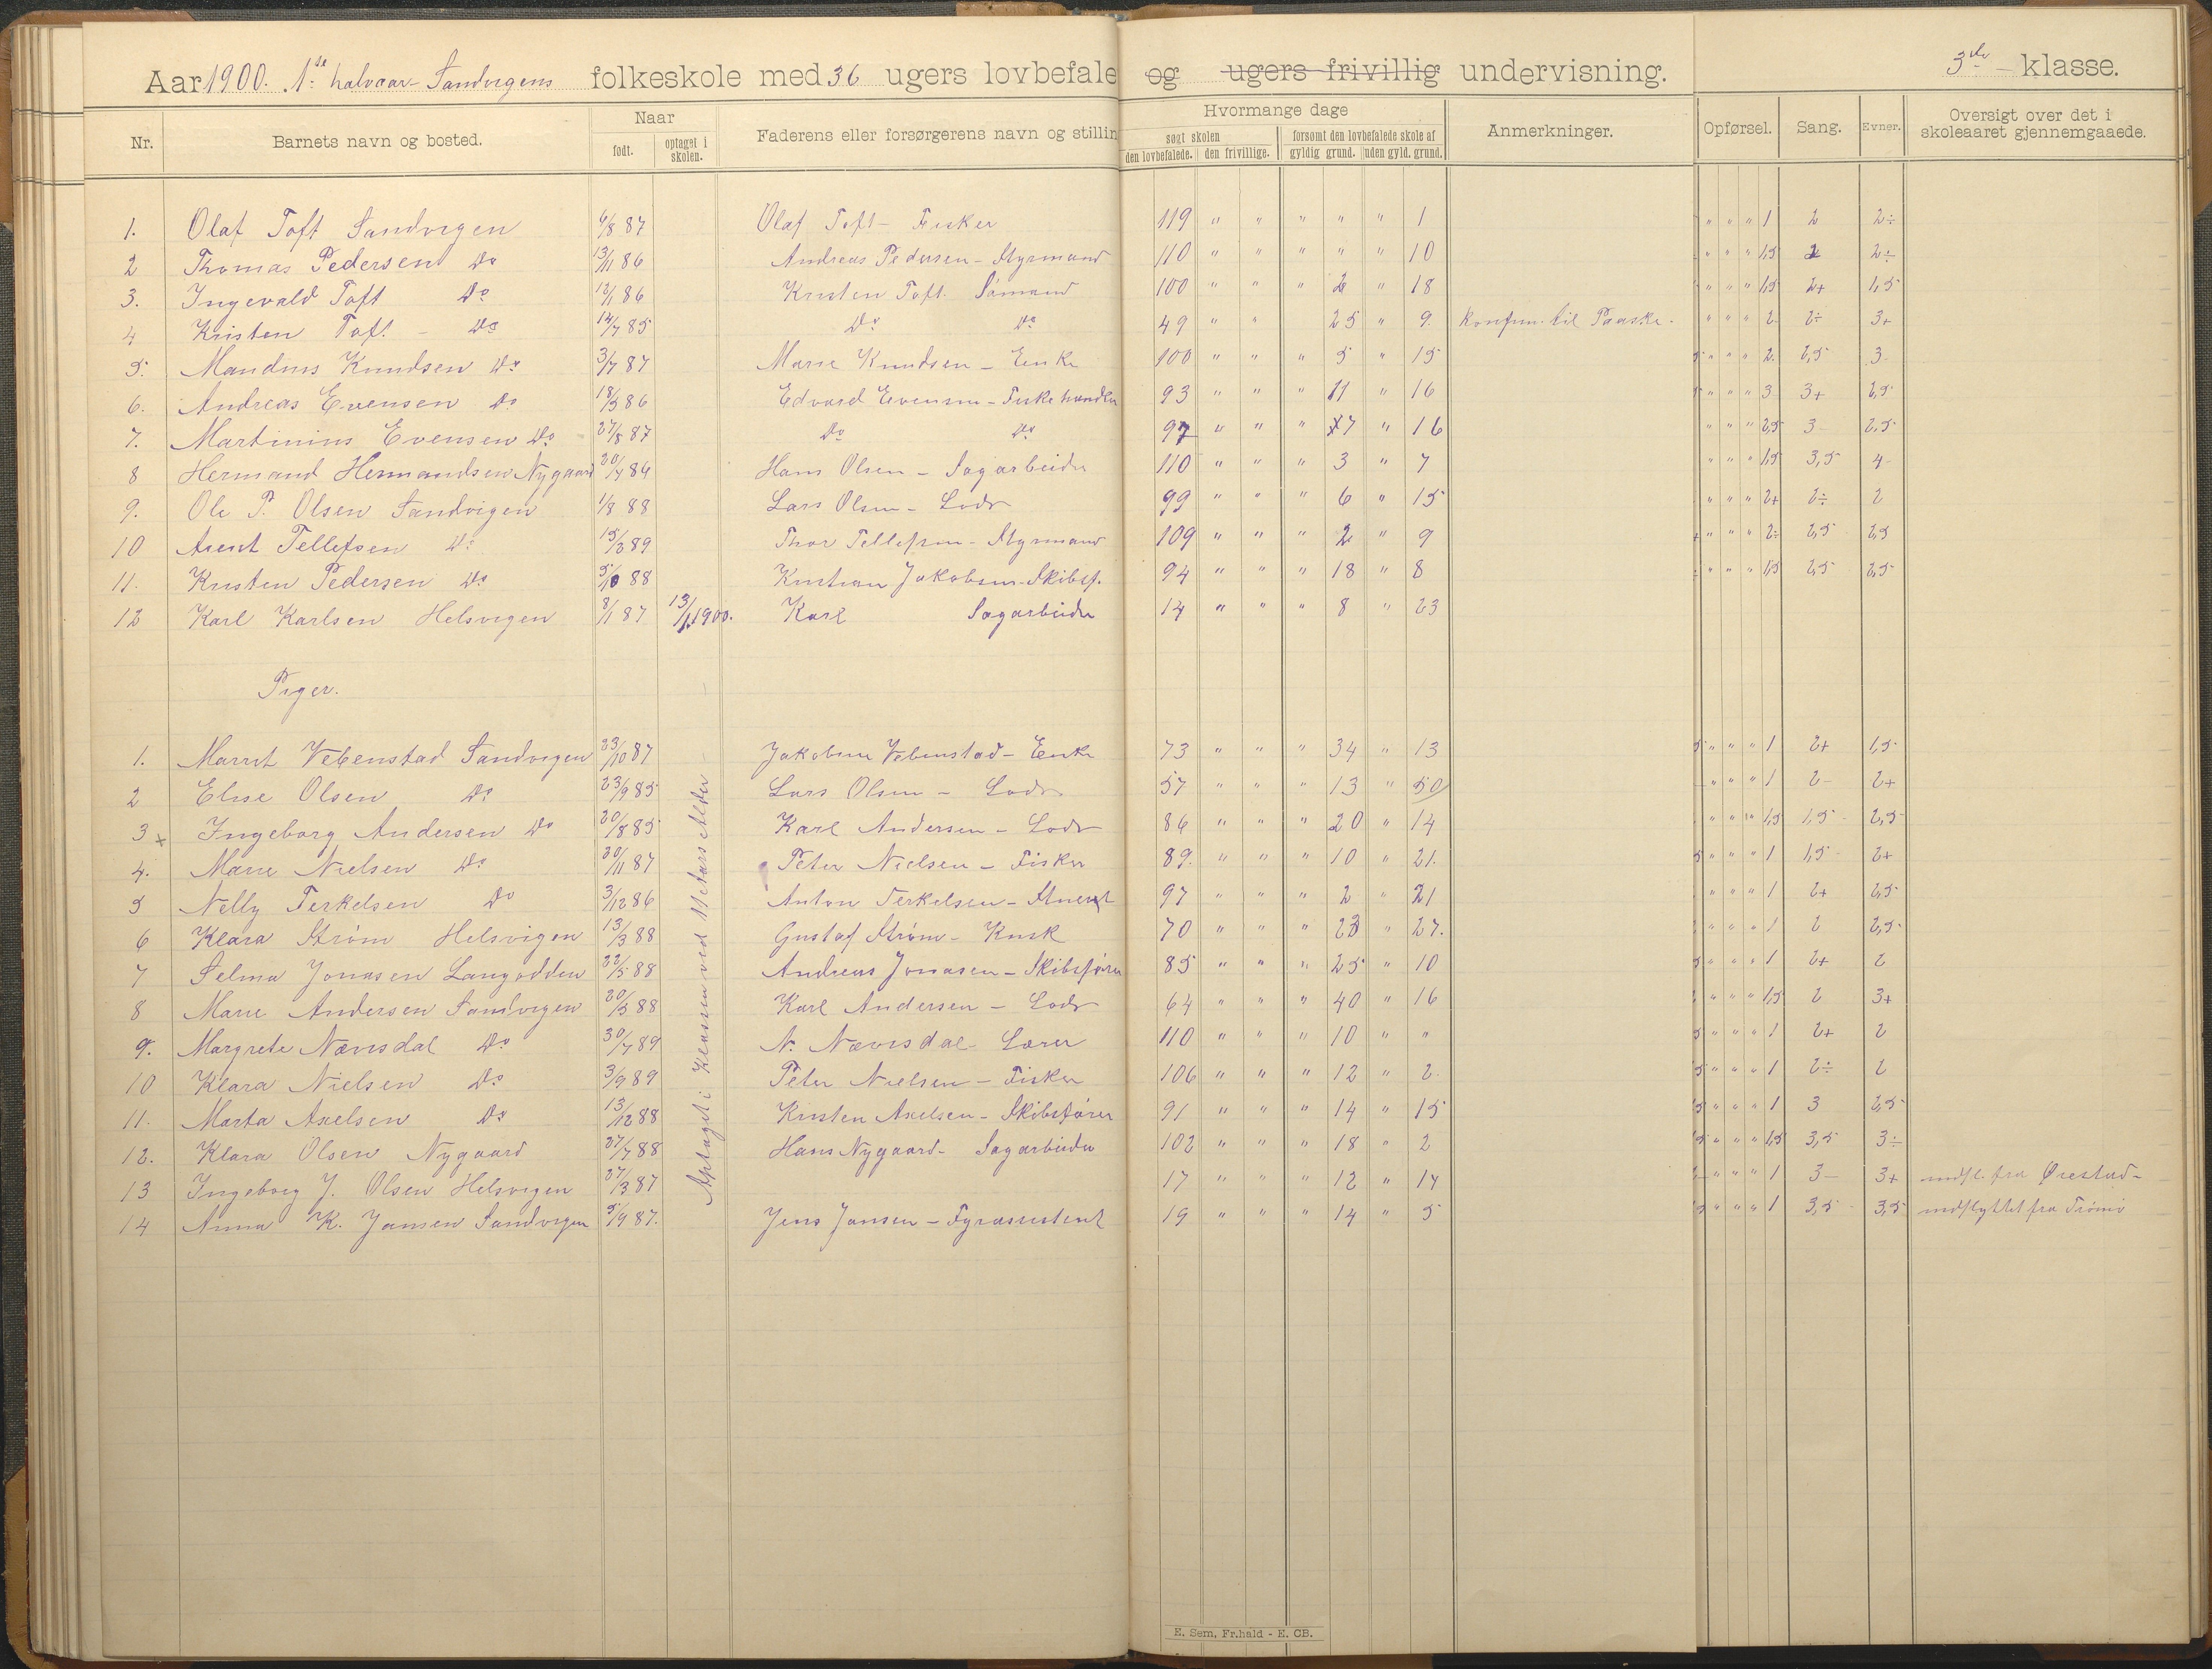 Aar 1900. 1ste halvaar - Sandvigens folkeskole med 36 ugers lovbefale og ugers frivillig undervisning. 3de - klasse.
Nr. Barnets navn og bosted. Naar født. optaget i skolen. Faderens eller forsørgerens navn og stillin Hvormange dage søgt skolen den lovbefalede. den frivillige. forsømt den lovbefalede skole af gyldig grund. uden gyld. grund. Anmerkninger. Opførsel. Sang. Evner. Oversigt over det i skoleaaret gjennemgaaede.
1. Olaf Toft Sandvigen 6/8 87 Olaf Toft - Fisker 119 " " " " " 1 " " " 1 2 2÷
2 Thomas Pedersen Do 13/11 86 Andreas Pedersen - Styrmand 110 " " " " " 10 " " " 1,5 2 2÷
3. Ingevald Toft Do 12/1 86 Kristen Toft Sømand 100 " " " 2 " 18 " " " 1,5 2+ 1,5
4 Kristen Toft - Do 14/7 85 Do Do 49 " " " 25 " 9. Konfirm. til Paaske. " " " 2 2÷ 3+
5. Mandius Knudsen Do 3/7 87 Marie Knudsen - Enke 100 " " " 5 " 15 " " " 2. 2,5 3
6. Andreas Evensen Do 18/3 86 Edvard Evensen - Fiskehandler 93 " " " 11 " 16 " " " 3 3+ 2,5
7. Martinius Evensen Do 27/8 87 Do Do 97 " " " 7 " 16 " " " 2,5 3 2,5
8 Hermand Hermandsen Nygaard 20/4 86 Hans Olsen - Sagarbeider 110 " " " 3 " 7 " " " 1,5 3,5 4
9. Ole P. Olsen Sandvigen 1/8 88 Lars Olsen - Lods 99 " " " 6 " 15 " " " 2+ 2÷ 2
10 Arent Tellefsen Do 15/3 89 Thor Tellefsen - Styrmand 109 " " " 2 " 9 " " " 2÷ 2,5 2,5
11. Kristen Pedersen Do 5/10 88 Kristian Jakobsen - Skibsf. 94 " " " 18 " 8 " " " 1,5 2,5 2,5
12 Karl Karlsen Helsvigen 8/1 87 13/1 1900. Karl Sagarbeider 14 " " " 8 " 23
Piger.
Optaget i Klassen ved 11 Aars Alder
1. Marit Vebenstad Sandvigen 23/10 87 Jakobine Vebenstad - Enke 73 " " " 34 " 13 " " " 1 2+ 1,5
2 Elise Olsen Do 23/9 85 Lars Olsen - Lods 57 " " " 13 " 50 " " " 1 2- 2+
3 x Ingeborg Andersen Do 20/8 85 Karl Andersen - Lods 86 " " " 20 " 14 " " " 1,5 1,5 2,5
4. Marie Nielsen Do 30/11 87 Peter Nielsen - Fisker 89. " " " 10 " 21. " " " 1 1,5 2+
5 Nelly Terkelsen Do 3/12 86 Anton Terkelsen - 97 " " " 2 " 21 " " " 1 2+ 2,5
6 Klara Strøm Helsvigen 13/3 88 Gustaf Strøm - Kusk 70 " " " 23 " 27. " " " 1 2 2,5
7 Selma Jonasen Langodden 22/5 88 Andreas Jonasen - Skibsfører 85 " " " 25 " 10 " " " 1 2+ 2
8 Marie Andersen Sandvigen 20/3 88 Karl Andersen - Lods 64 " " " 40 " 16 " " " 1,5 2 3+
9. Margrete Nævisdal Do 30/7 89 N. Nævisdal - Lærer 110 " " " 10 " " " " " 1 2+ 2
10 Klara Nielsen Do 3/9 89 Peter Nielsen - Fisker 106 " " " 12 " 2. " " " 1 2÷ 2
11. Marta Axelsen Do 13/12 88 Kristen Axelsen - Skibsfører 91 " " " 14 " 15 " " " 1 3 2,5
12. Klara Olsen Nygaard 27/7 88 Hans Nygaard - Sagarbeider 102 " " " 18 " 2 " " " 1,5 3,5 3÷
13 Ingeborg J. Olsen Helsvigen 27/3 87 17 " " " 12 " 14 " " " 1 3- 3+ indfl. fra Ørestad -
14 Anna K. Jansen Sandvigen 5/9 87. Jens Jansen - Fyrassistent 19 " " " 14 " 5 " " " 1 3,5 3,5 indflyttet fra Tromø
E. Sem, Fr.hald - E. CB.